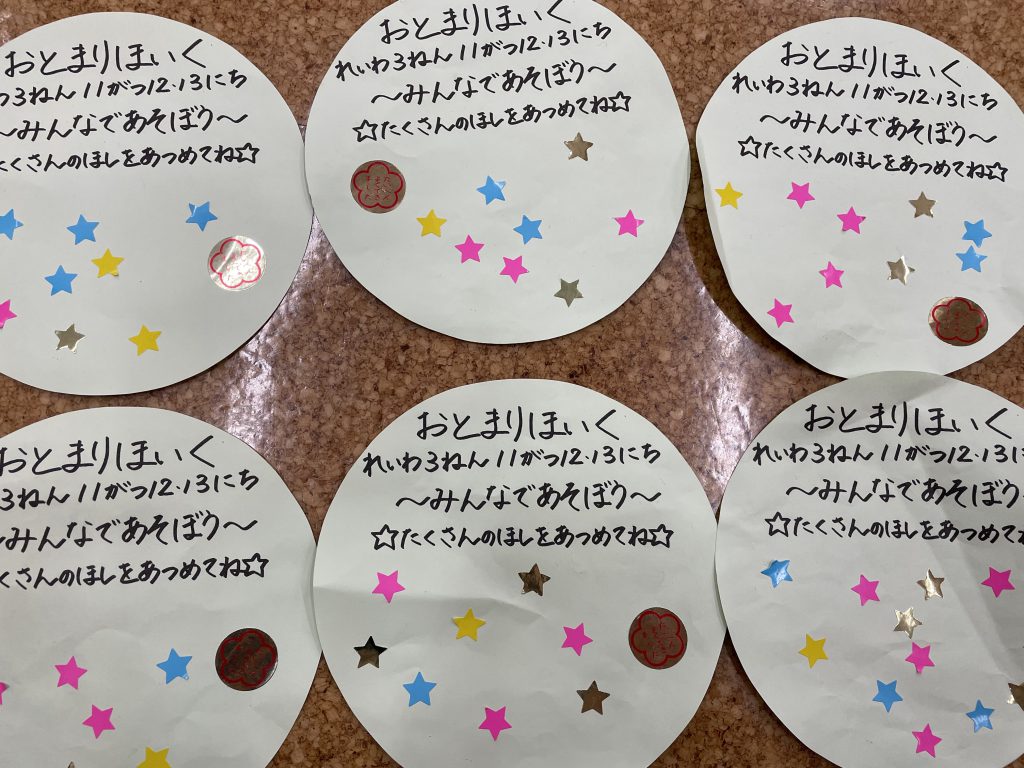 おとまりほいく
わ3ねん 11がつ12・13にち
〜みんなであそぼう〜
たくさんのほしをあつめてね☆
おとまりほいく
れいわ3ねん 11がつ12・13にち
〜みんなであそぼう〜
☆たくさんのほしをあつめてね☆
おとまりほいく
れいわ3ねん 11がつ12・13にち
〜みんなであそぼう〜
☆たくさんのほしをあつめてね☆
おとまりほいく
3ねん 11がつ12・13にち
〜みんなであそぼう〜
たくさんのほしをあつめてね☆
おとまりほいく
れいわ3ねん 11がつ12・13にち
〜みんなであそぼう〜
☆たくさんのほしをあつめてね☆
おとまりほいく
れいわ3ねん 11がつ12・13に
〜みんなであそぼう
☆たくさんのほしをあつめてね